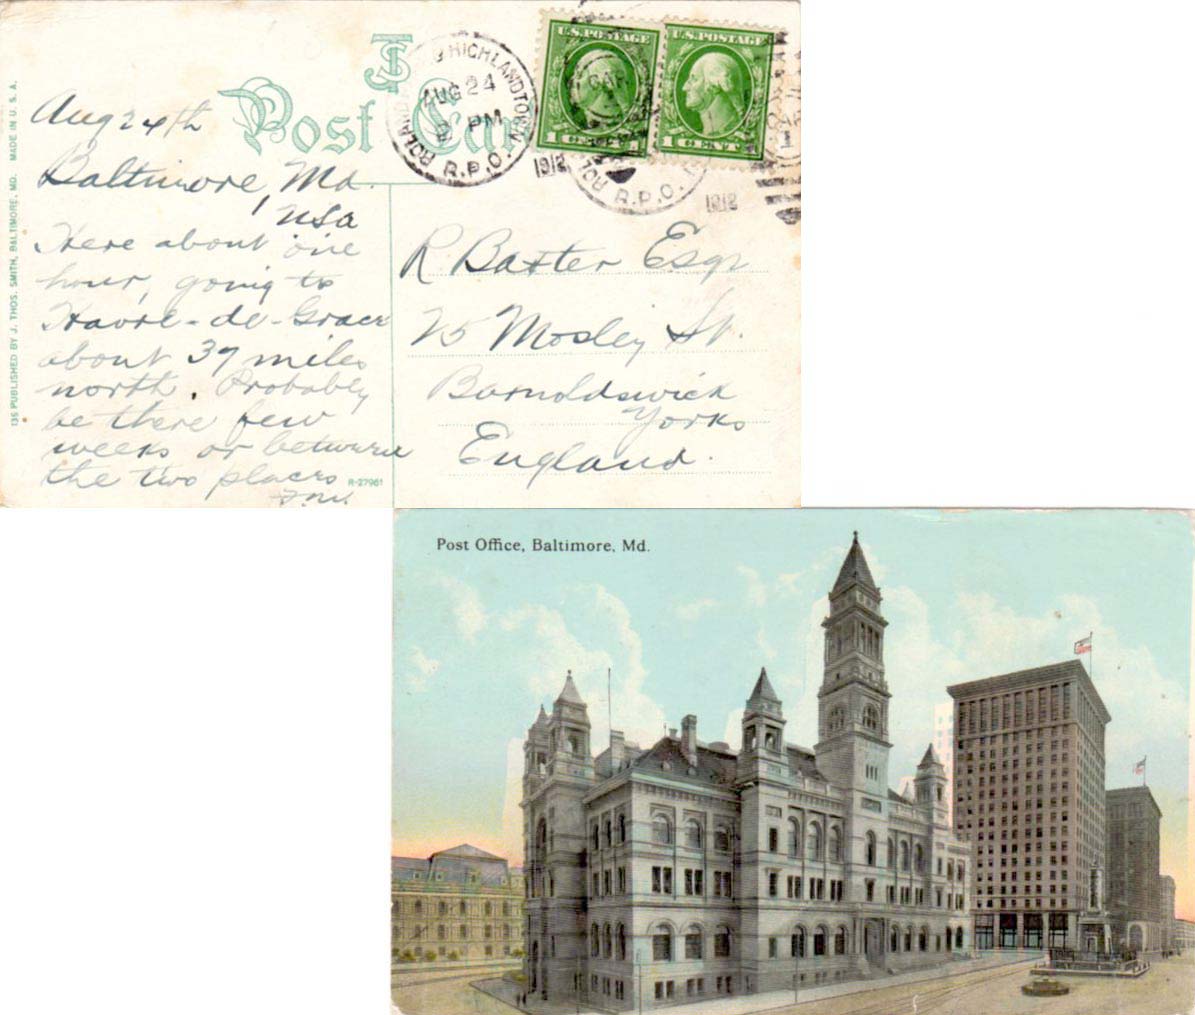 136 PUBLISHED BY J. THOS. SMITH, BALTIMORE, MD. MADE IN U.S.A.
Post Card
ROLAND HIGHLANDTOWN
AUG 24
PM
R.P.O.
1912
U.S. POSTAGE
1 CENT 1
U.S. POSTAGE
1 CENT 1
CAR
R.P.O.
1912
CAR
1
Aug 24th
Baltimore, Md.
USA
Here about one
hour, going to
Havre-de-Grace
about 37 miles
north. Probably
be there few
weeks or between
the two places
R-27961
R. Baxter Esqr
25 Mosley St.
Barnoldswick
Yorks
England.
Post Office, Baltimore, Md.